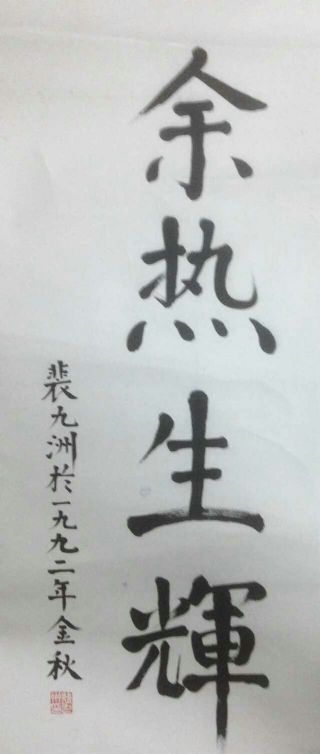 余热生輝
裴九洲於一九九二年金秋